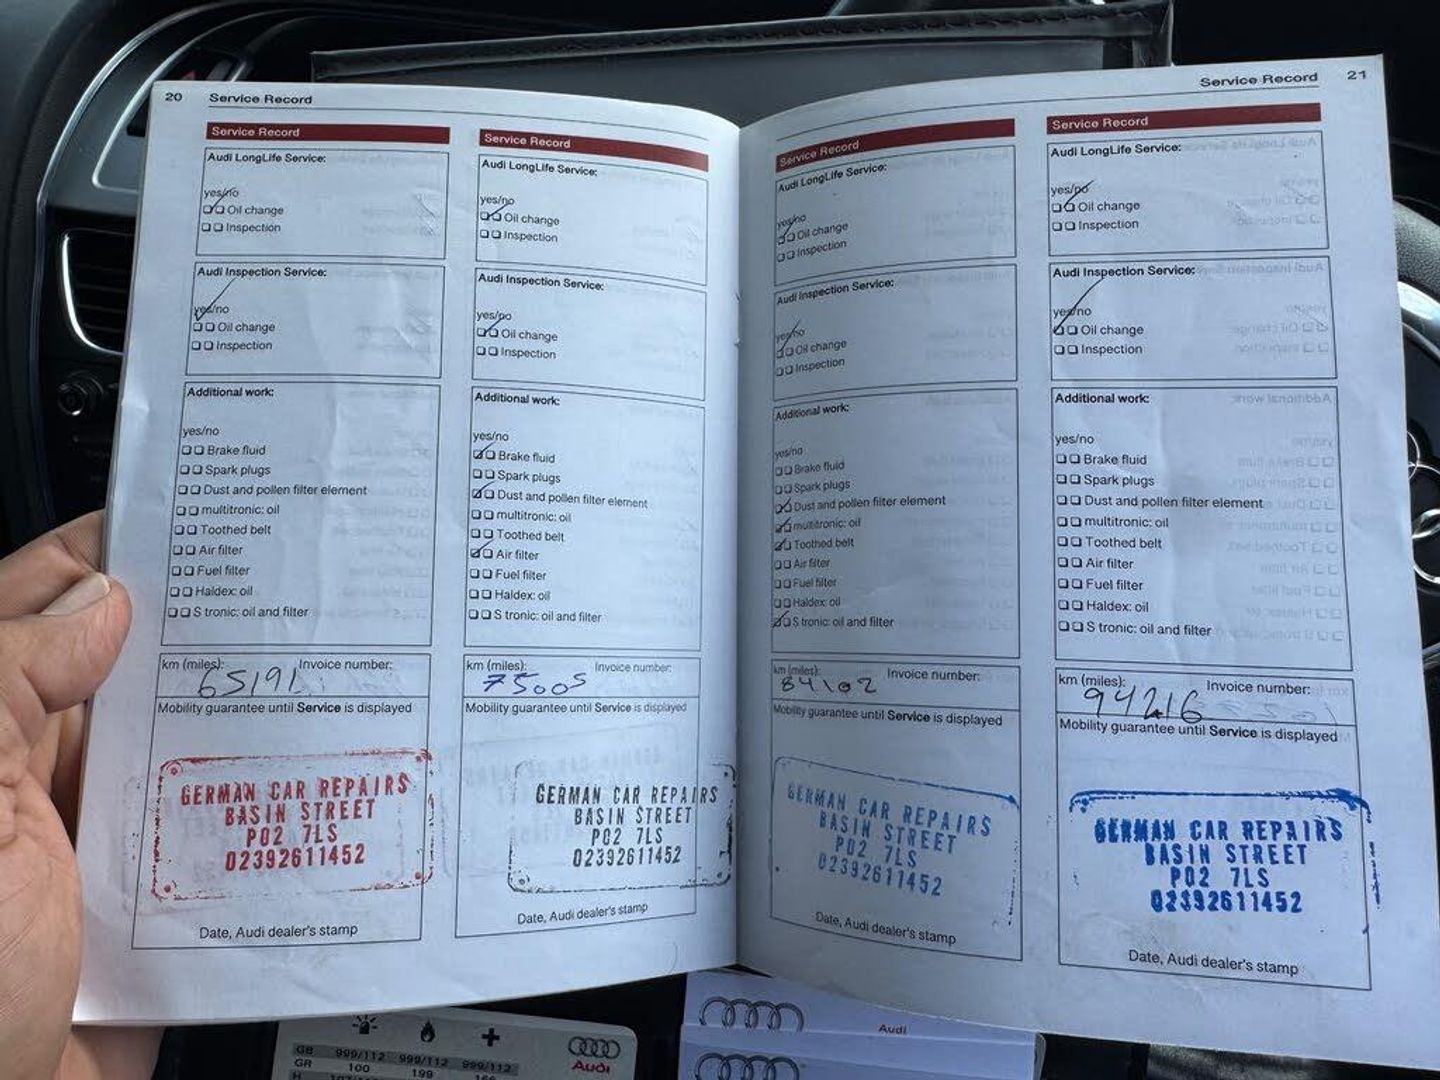 20 Service Record
Service Record
Audi LongLife Service:
yes/no
Oil change
Inspection
Audi Inspection Service:
yes/no
Oil change
Inspection
Additional work:
yes/no
Brake fluid
Spark plugs
Dust and pollen filter element
multitronic: oil
Toothed belt
Air filter
Fuel filter
Haldex: oil
S tronic: oil and filter
km (miles): Invoice number:
65191
Mobility guarantee until Service is displayed
GERMAN CAR REPAIRS
BASIN STREET
PO2 7LS
02392611452
Date, Audi dealer's stamp
Service Record
Audi LongLife Service:
yes/no
Oil change
Inspection
Audi Inspection Service:
yes/no
Oil change
Inspection
Additional work:
yes/no
Brake fluid
Spark plugs
Dust and pollen filter element
multitronic: oil
Toothed belt
Air filter
Fuel filter
Haldex: oil
S tronic: oil and filter
km (miles): Invoice number:
75005
Mobility guarantee until Service is displayed
GERMAN CAR REPAIRS
BASIN STREET
PO2 7LS
02392611452
Date, Audi dealer's stamp
Service Record 21
Service Record
Audi LongLife Service:
yes/no
Oil change
Inspection
Audi Inspection Service:
yes/no
Oil change
Inspection
Additional work:
yes/no
Brake fluid
Spark plugs
Dust and pollen filter element
multitronic: oil
Toothed belt
Air filter
Fuel filter
Haldex: oil
S tronic: oil and filter
km (miles): Invoice number:
84102
Mobility guarantee until Service is displayed
GERMAN CAR REPAIRS
BASIN STREET
PO2 7LS
02392611452
Date, Audi dealer's stamp
Service Record
Audi LongLife Service:
yes/no
Oil change
Inspection
Audi Inspection Service:
yes/no
Oil change
Inspection
Additional work:
yes/no
Brake fluid
Spark plugs
Dust and pollen filter element
multitronic: oil
Toothed belt
Air filter
Fuel filter
Haldex: oil
S tronic: oil and filter
km (miles): Invoice number:
94216
Mobility guarantee until Service is displayed
GERMAN CAR REPAIRS
BASIN STREET
PO2 7LS
02392611452
Date, Audi dealer's stamp
GB 999/112 999/112 999/112
GR 100 199 166
Audi
Audi